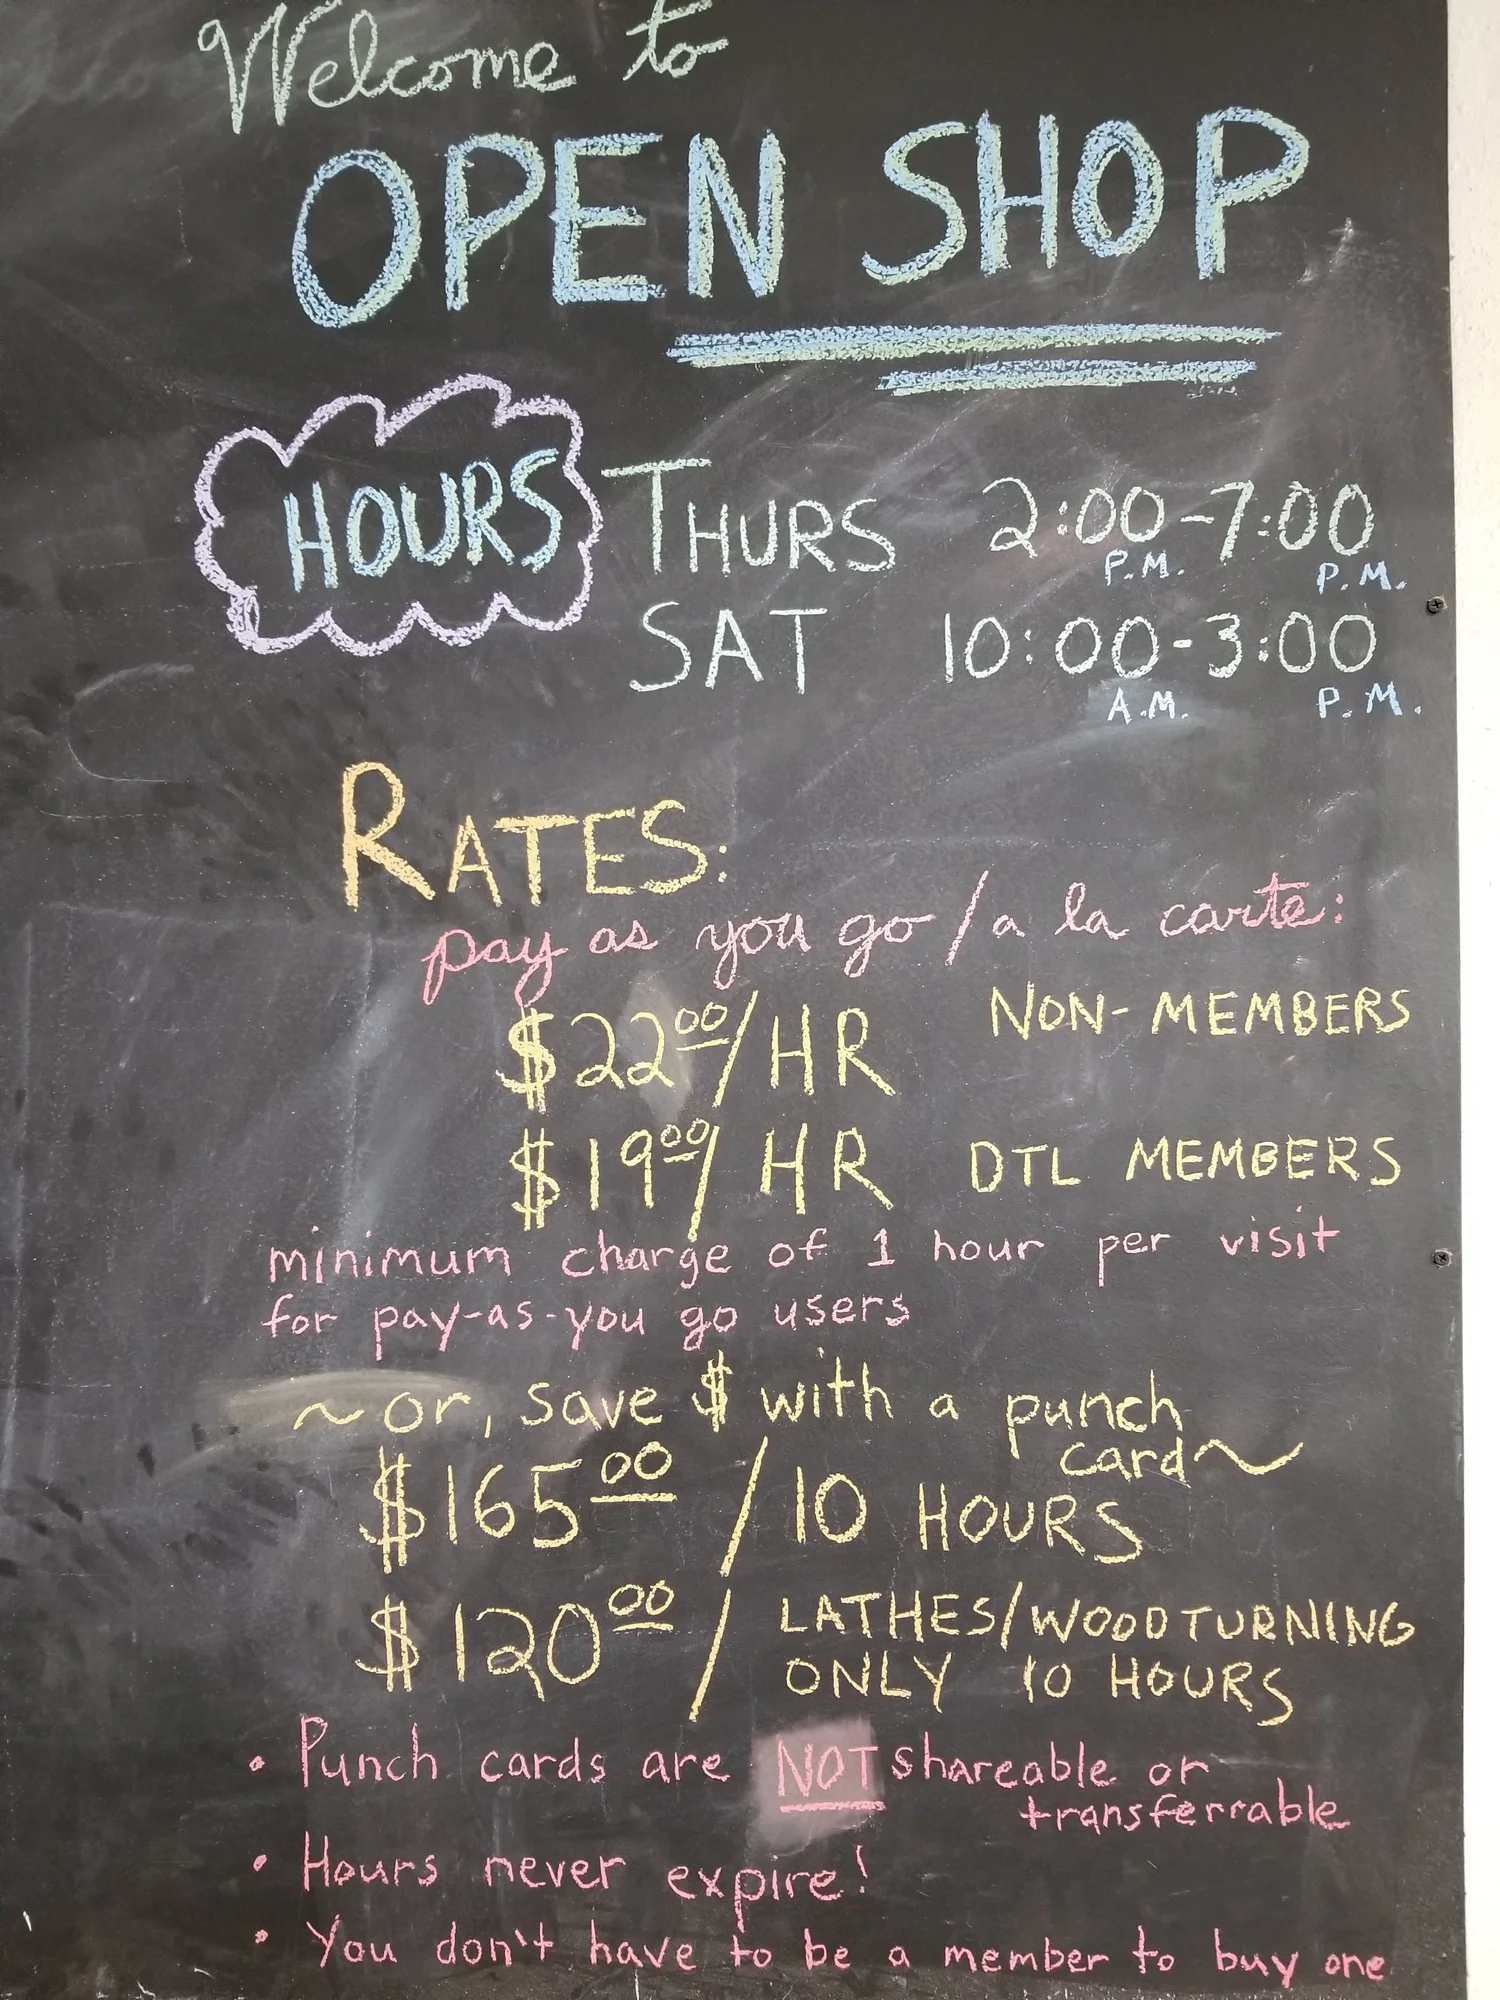 Welcome to
OPEN SHOP
HOURS THURS 2:00 P.M. - 7:00 P.M.
SAT 10:00 A.M. - 3:00 P.M.
RATES:
pay as you go / a la carte:
$22.00/HR NON-MEMBERS
$19.00/HR DTL MEMBERS
minimum charge of 1 hour per visit
for pay-as-you go users
~ or, save $ with a punch
card ~
$165.00 / 10 HOURS
$120.00 / LATHES/WOODTURNING
ONLY 10 HOURS
• Punch cards are NOT shareable or
transferrable
• Hours never expire!
• You don't have to be a member to buy one